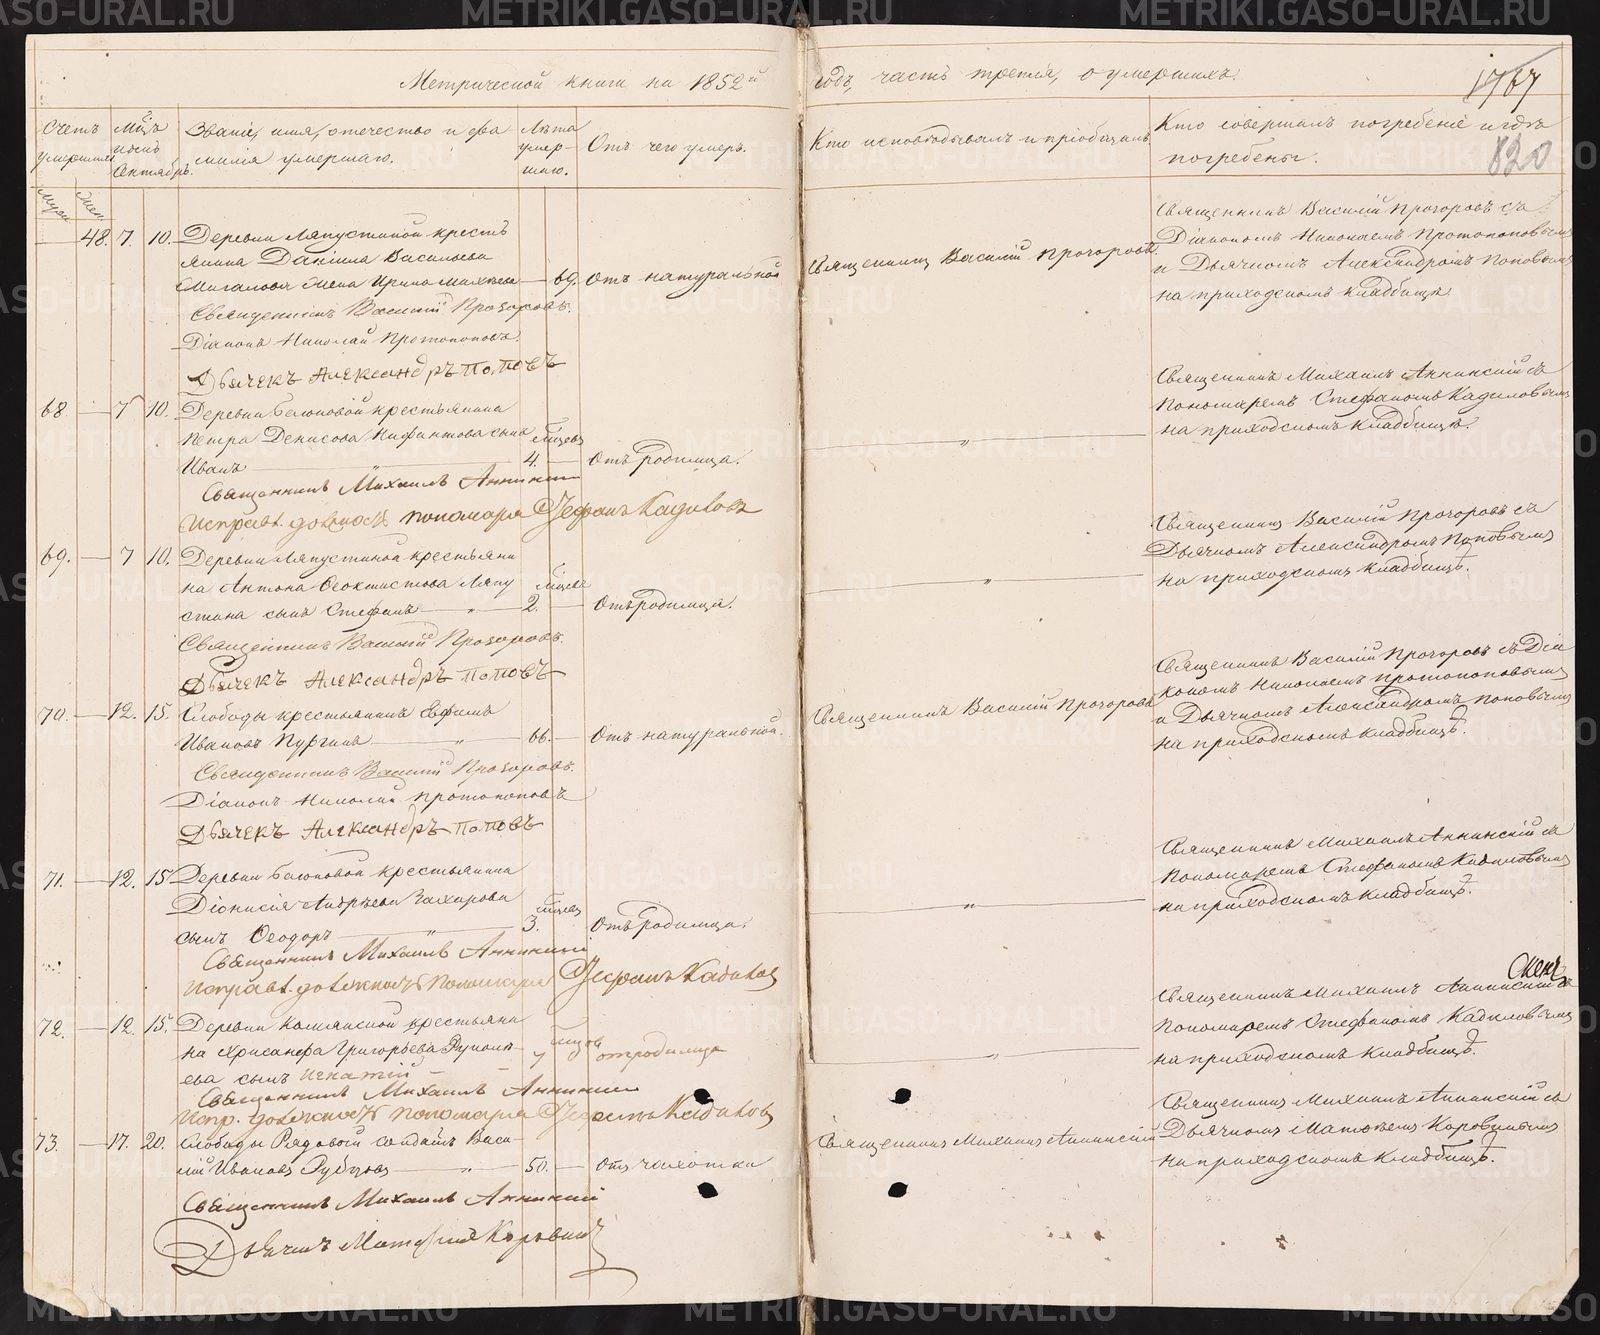 Метрической книги на 1852й
годъ, часть третія, о умершихъ.
1767
820
Счетъ умершихъ
Муж.
Жен.
Мѣс. и день
Сентябрь
Званіе, имя, отечество и фа-
милія умершаго.
Лѣта
умер-
шаго.
Отъ чего умеръ.
Кто исповѣдывалъ и пріобщалъ.
Кто совершалъ погребеніе и гдѣ
погребены.
48. 7. 10. Деревни Ляпустиной кресть
янина Даніила Васильева
Мигалова жена Ирина 69. Отъ натуральной
Священникъ Василій Прозоровъ.
Діаконъ Николай Протопоповъ.
Дьячекъ Александръ Поповъ
Священникъ Василій Прозоровъ
Священникъ Василій Прозоровъ съ
Діакономъ Николаемъ Протопоповымъ
и Дьячкомъ Александромъ Поповымъ
на приходскомъ кладбищѣ.
68 — 7 10. Деревни крестьянина
Петра Денисова сынъ мѣсец
Иванъ — " — 4. — Отъ родимца.
Священникъ Михаилъ Аннинскій
Исправ. должность пономаря Стефанъ Кадиловъ
— " —
Священникъ Михаилъ Аннинскій съ
Пономаремъ Стефаномъ Кадиловымъ
на приходскомъ кладбищѣ.
69. — 7 10. Деревни Ляпустиной крестьяни
на Антона Ѳеоктистова Ляпу
стина сынъ Стефанъ — " — 2. — Отъ родимца.
Священникъ Василій Прозоровъ.
Дьячекъ Александръ Поповъ
— " —
Священникъ Василій Прозоровъ съ
Дьячкомъ Александромъ Поповымъ
на приходскомъ кладбищѣ.
70. — 12. 15. Слободы крестьянинъ Евфимъ
Ивановъ Пургинъ — " — 66. — Отъ натуральной.
Священникъ Василій Прозоровъ.
Діаконъ Николай Протопоповъ
Дьячекъ Александръ Поповъ
Священникъ Василій Прозоровъ
Священникъ Василій Прозоровъ съ Діа
кономъ Николаемъ Протопоповымъ
и Дьячкомъ Александромъ Поповымъ
на приходскомъ кладбищѣ.
71. — 12. 15 Деревни крестьянина
Діонисія Андреева Захарова
сынъ Ѳеодоръ — " — 3. Отъ родимца.
Священникъ Михаилъ Аннинскій
Исправ. должность Пономаря Стефанъ Кадиловъ
— " —
Священникъ Михаилъ Аннинскій съ
Пономаремъ Стефаномъ Кадиловымъ
на приходскомъ кладбищѣ.
72. — 12. 15. Деревни крестьяни
на Хрисанфа Григорьева
ева сынъ Игнатій отродимца
Священникъ Михаилъ Аннинскій
Испр. должность пономаря Стефанъ Кадиловъ
— " —
Священникъ Михаилъ Аннинскій съ
Пономаремъ Стефаномъ Кадиловымъ
на приходскомъ кладбищѣ.
73. — 17. 20. Слободы Рядовой солдатъ Васи-
лій Ивановъ Рубцовъ — " — 50. — Отъ чахотки
Священникъ Михаилъ Аннинскій
Дьячекъ Матфей Коровинъ
Священникъ Михаилъ Аннинскій
Священникъ Михаилъ Аннинскій съ
Дьячкомъ Матѳеемъ Коровинымъ
на приходскомъ кладбищѣ.
METRIKI.GASO-URAL.RU